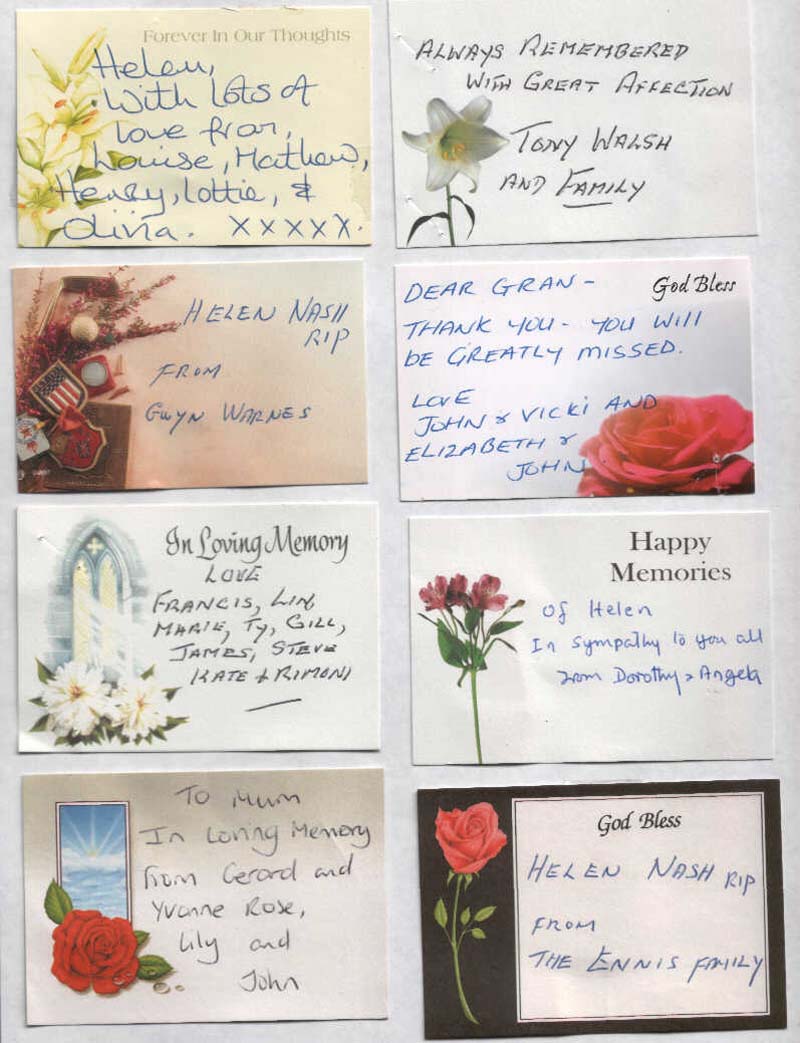 Forever In Our Thoughts
Helen,
With lots of
love from,
Louise, Mathew,
Henry, Lottie, &
Olivia. XXXXX.
ALWAYS REMEMBERED
WITH GREAT AFFECTION
TONY WALSH
AND FAMILY
HELEN NASH
RIP
FROM
GWYN WARNES
God Bless
DEAR GRAN -
THANK YOU - YOU WILL
BE GREATLY MISSED.
LOVE
JOHN & VICKI AND
ELIZABETH &
JOHN
In Loving Memory
LOVE
FRANCIS, LIN
MARIE, TY, GILL,
JAMES, STEVE
KATE & RIMONI
Happy
Memories
Of Helen
In sympathy to you all
from Dorothy & Angela
To Mum
In Loving Memory
from Gerard and
Yvonne Rose,
Lily and
John
God Bless
HELEN NASH RIP
FROM
THE ENNIS FAMILY